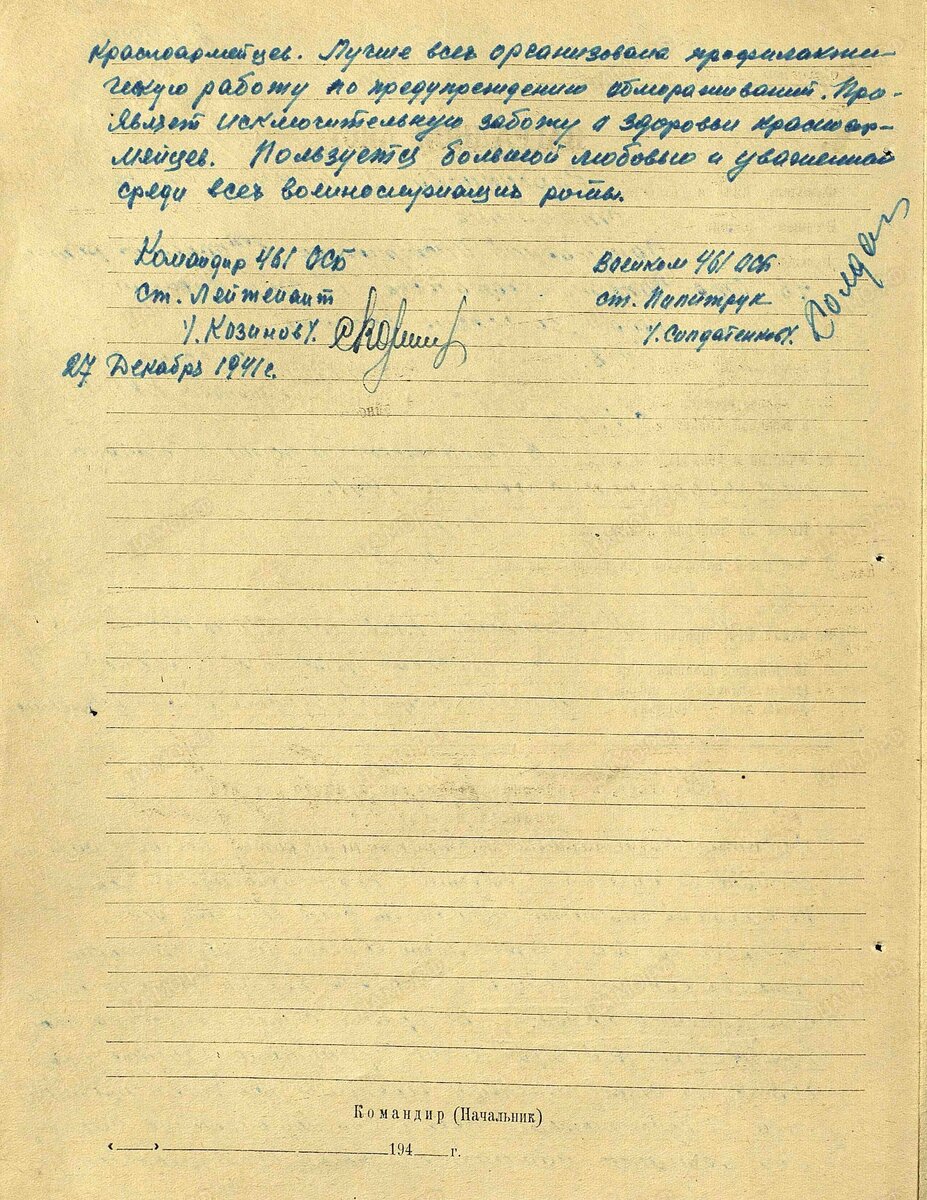 Красноармейцев. Лучше всех организовала профилакти-
ческую работу по предупреждению обмораживаний. Про-
являет исключительную заботу о здоровьи красноар-
мейцев. Пользуется большой любовью и уважением
среди всех военнослужащих роты.
Командир 461 ОСБ
Военком 461 ОСБ
Ст. Лейтенант
ст. Политрук
/. Козинов/.
/. Солдатенко/.
27 Декабрь 1941 г.
Командир (Начальник)
« » 194 г.